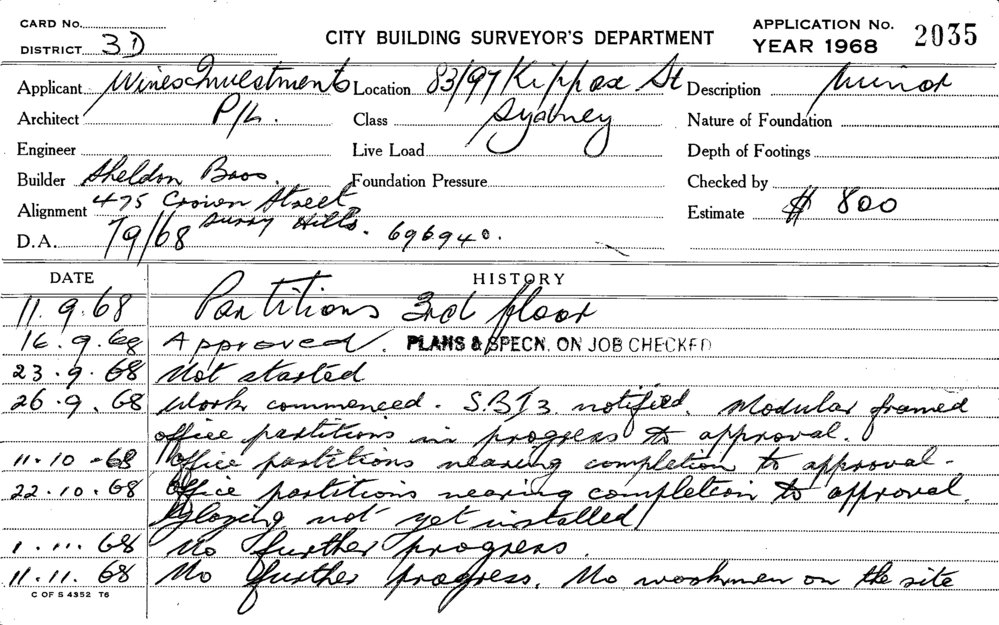 CARD No.
DISTRICT 3D
CITY BUILDING SURVEYOR'S DEPARTMENT
APPLICATION No. 2035
YEAR 1968
Applicant Wines Investments Location 83/97 Kippax St Description Minor
Architect P/L. Class Sydney Nature of Foundation
Engineer Live Load Depth of Footings
Builder Sheldon Bros. Foundation Pressure Checked by
Alignment 475 Crown Street Estimate $ 800
Surry Hills. 696940.
D.A. 79/68
DATE HISTORY
11.9.68 Partitions 3rd floor
16.9.68 Approved. PLANS & SPECN. ON JOB CHECKED
23.9.68 Not started
26.9.68 Work commenced. S.B.I3 notified. Modular framed
office partitions in progress to approval.
11.10.68 Office partitions nearing completion to approval.
22.10.68 Office partitions nearing completion to approval.
glazing not yet installed
1.11.68 No further progress.
11.11.68 No further progress. No workmen on the site
C OF S 4352 T6